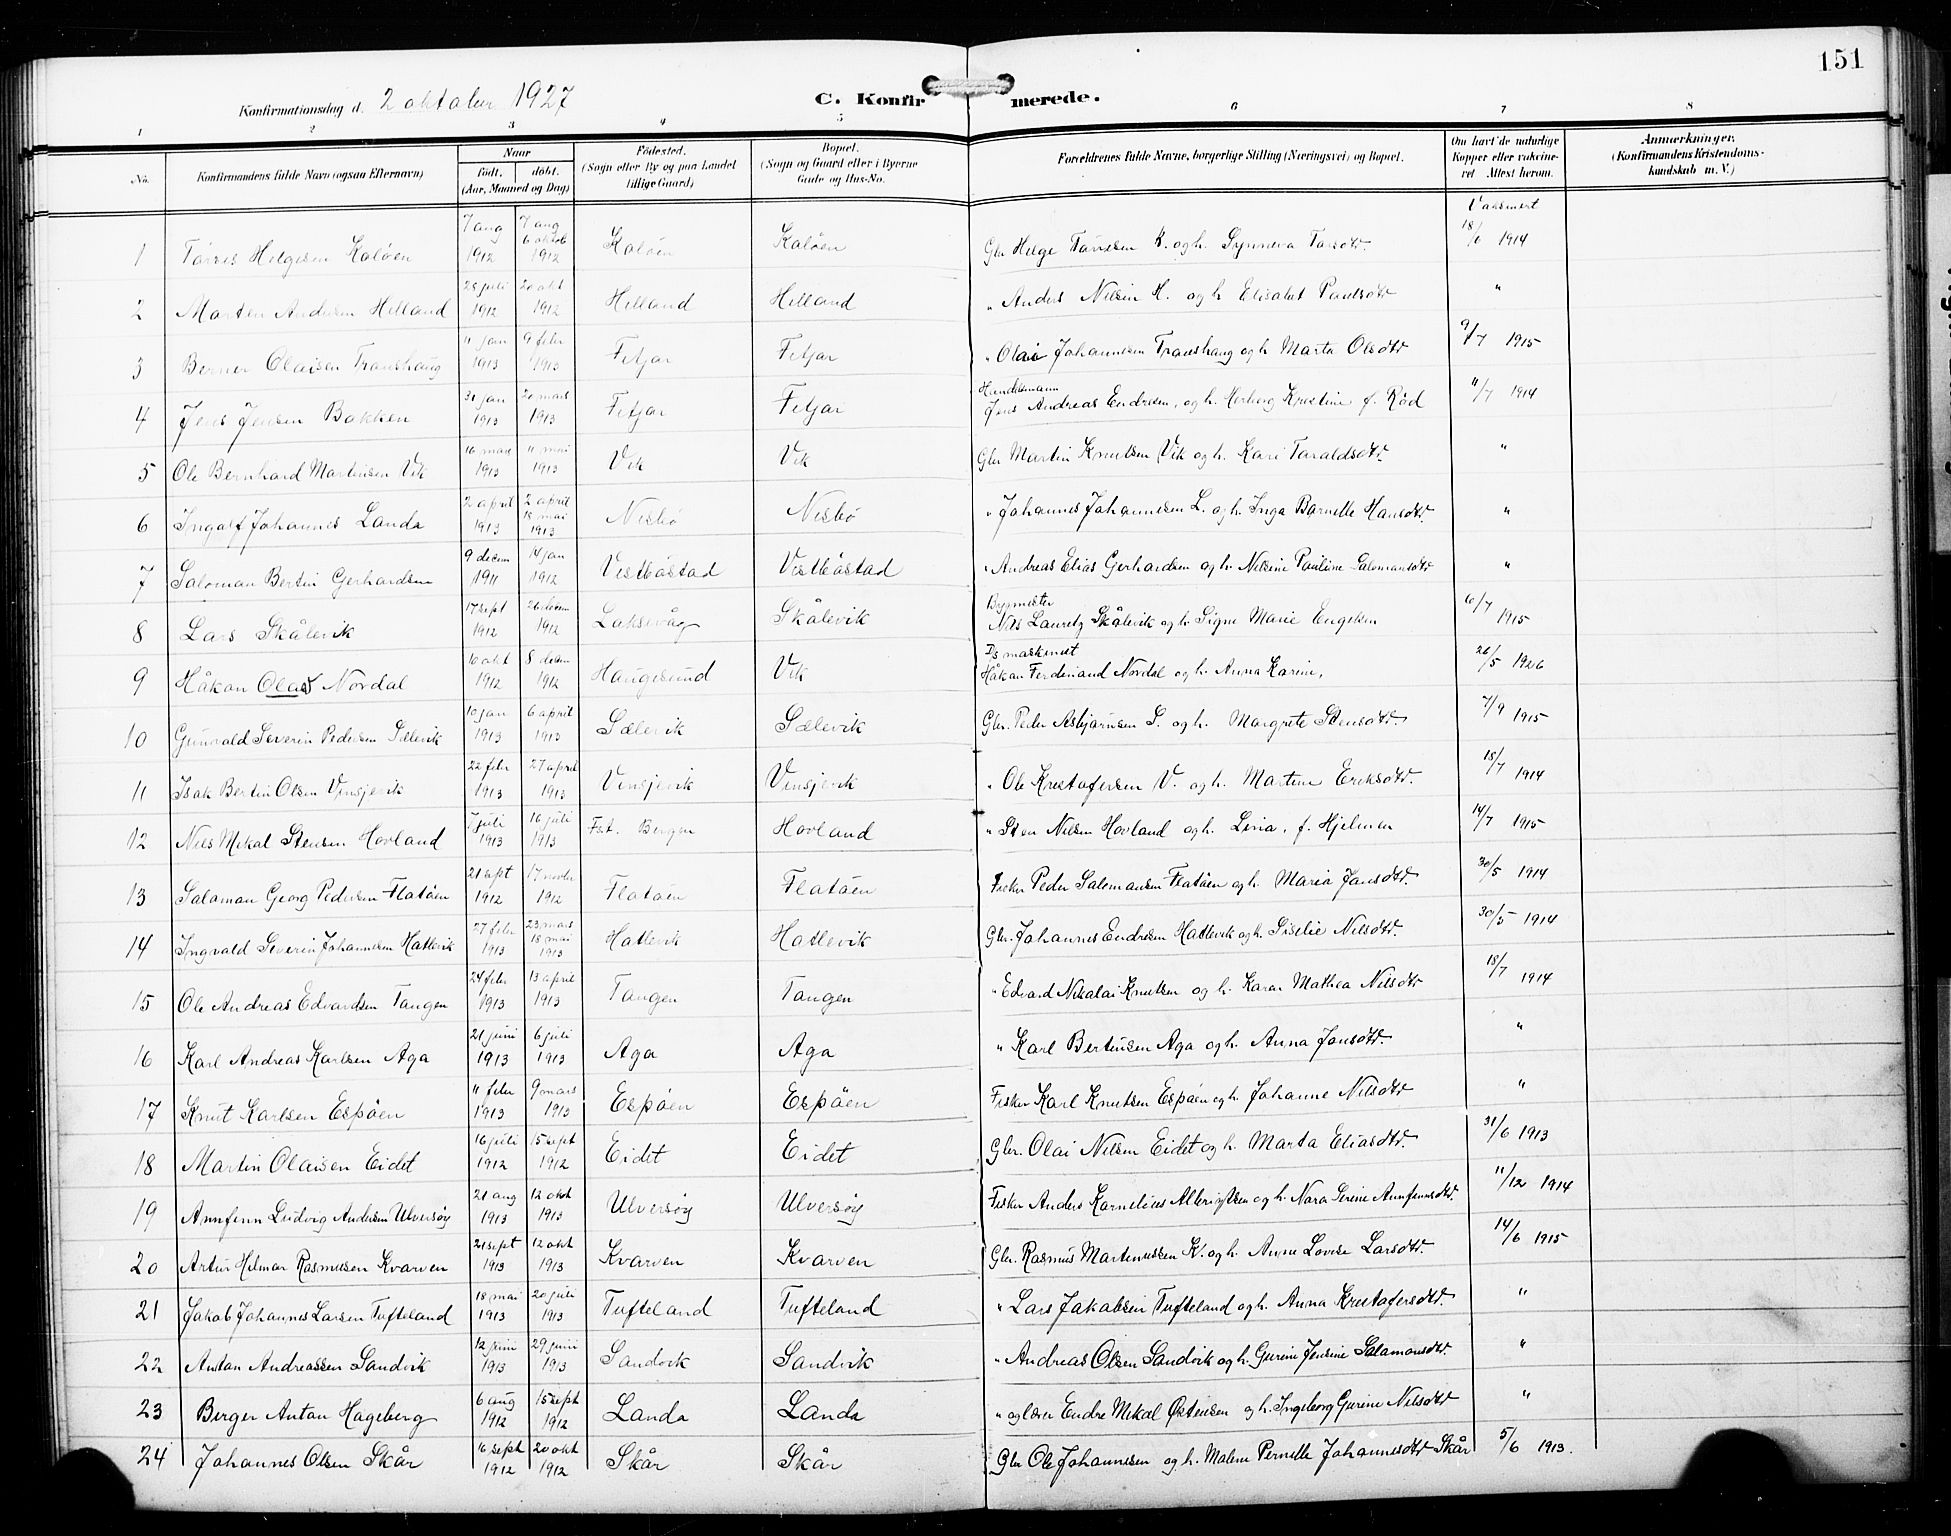 151
Konfirmationsdag d. 2 oktober 1927 C. Konfirmerede.
1 2 3 4 5 6 7 8
No. Konfirmandens fulde Navn (ogsaa Efternavn) Naar født. døbt. (Aar, Maaned og Dag) Fødested. (Sogn eller By og paa Landet tillige Gaard) Bopæl. (Sogn og Gaard eller i Byerne Gade og Hus-No. Forældrenes fulde Navne, borgerlige Stilling (Næringsvei) og Bopæl. Om havt de naturlige Kopper eller vaccineret Attest herom. Anmærkninger. (Konfirmandens Kristendomskundskab m. V.)
1 Tørres Helgesen Kaløen 7 aug 1912 7 aug 6 oktob 1912 Kaløen Kaløen Gbr Helge Tørresen K. og h. Synneva Larsdtr. Vaksinert 18/6 1914
2 Marten Andersen Helland 25 juli 1912 20 okt 1912 Helland Helland " Anders Nilsen H. og h. Elisabet Paulsdtr "
3 Berner Olaisen Traushaug 11 jan 1913 9 febr 1913 Fitjar Fitjar " Olai Johannesen Traushaug og h. Marta Olsdtr 9/7 1915
4 Jens Jensen Bakken 31 jan 1913 20 mars 1913 Fitjar Fitjar Handelsmann Jens Andreas Endresen, og h. Herborg Kristine f. Rød 11/7 1914
5 Ole Bernhard Martinsen Vik 16 mars 1913 11 mai 1913 Vik Vik Gbr Martin Knutsen Vik og h. Kari Taraldsdtr. "
6 Ingolf Johannes Landa 2 april 1913 2 april 18 mai 1913 Nesbø Nesbø " Johannes Johannesen L. og h. Inga Barnelle Hansdtr. "
7 Saloman Bertin Gerhardsen 9 decem 1911 14 jan 1912 Vestbøstad Vestbøstad " Andreas Elias Gerhardsen og h. Nilsine Pauline Salomansdtr "
8 Lars Skålevik 17 sept 1912 26 decem 1912 Laksevåg Skålevik Bygmester Nils Lauretz Skålevik og h. Signe Marie Engelsen 6/7 1915
9 Håkon Olav Nordal 10 okt 1912 8 decem 1912 Haugesund Vik D/s maskinist Håkon Ferdinand Nordal og h. Anna Karine, 26/5 1926
10 Gunvald Severin Pedersen Sælevik 10 jan 1913 6 april 1913 Sælevik Sælevik Gbr. Peder Asbjørnsen S. og h. Margrete Stensdtr. 7/9 1915
11 Isak Bertin Olsen Vinsjevik 22 febr 1913 27 april 1913 Vinsjevik Vinsjevik " Ole Kristofersen V. og h. Martine Eriksdtr. 15/7 1914
12 Nils Mikal Stensen Hovland 7 juli 1913 16 juli 1913 Fst. Bergen Hovland " Sten Nilsen Hovland og h. Lina, f. Hjelmen 14/7 1915
13 Saloman Georg Pedersen Flatøen 21 sept 1912 17 novbr 1912 Flatøen Flatøen Fisker Peder Salomansen Flatøen og h. Maria Jansdtr. 30/5 1914
14 Ingvald Severin Johannesen Hatlevik 27 febr 1913 23 mars 18 mai 1913 Hatlevik Hatlevik Gbr. Johannes Endresen Hatlevik og h. Siselie Nilsdtr. 30/5 1914
15 Ole Andreas Edvardsen Tangen 24 febr 1913 13 april 1913 Tangen Tangen " Edvard Nikolai Knutsen og h. Karen Mathea Nilsdtr 15/7 1914
16 Karl Andreas Karlsen Aga 21 juni 1913 6 juli 1913 Aga Aga " Karl Bertinsen Aga og h. Anna Jansdtr. "
17 Knut Karlsen Espøen 11 febr 1913 9 mars 1913 Espøen Espøen Fisker Karl Knutsen Espøen og h. Johanne Nilsdtr "
18 Martin Olaisen Eidet 16 juli 1912 15 sept 1912 Eidet Eidet Gbr. Olai Nilsen Eidet og h. Marta Eliasdtr. 31/6 1913
19 Annfinn Ludvig Andersen Ulversøy 21 aug 1913 12 okt 1913 Ulversøy Ulversøy Fisker Anders Kornelius Albrigtsen og h. Nora Serine Annfinnsdtr. 11/12 1914
20 Artur Hilmar Rasmusen Kvarven 21 sept 1913 12 okt 1913 Kvarven Kvarven Gbr. Rasmus Martinussen K. og h. Anne Lovise Larsdtr. 14/6 1915
21 Jakob Johannes Larsen Tufteland 18 mai 1913 20 juli 1913 Tufteland Tufteland " Lars Jakobsen Tufteland og h. Anna Kristofersdtr. "
22 Anton Andreassen Sandvik 12 juni 1913 29 juni 1913 Sandvik Sandvik " Andreas Olsen Sandvik og h. Gurine Jensine Salamonsdtr. "
23 Berger Anton Hageberg 6 aug 1912 15 sept 1912 Landa Landa " og lærer Endre Mikal Østensen og h. Ingeborg Gurine Nilsdtr "
24 Johannes Olsen Skår 16 sept 1912 20 okt 1912 Skår Skår Gbr Ole Johannesen og h. Malene Pernille Johannesdtr Skår 5/6 1913.